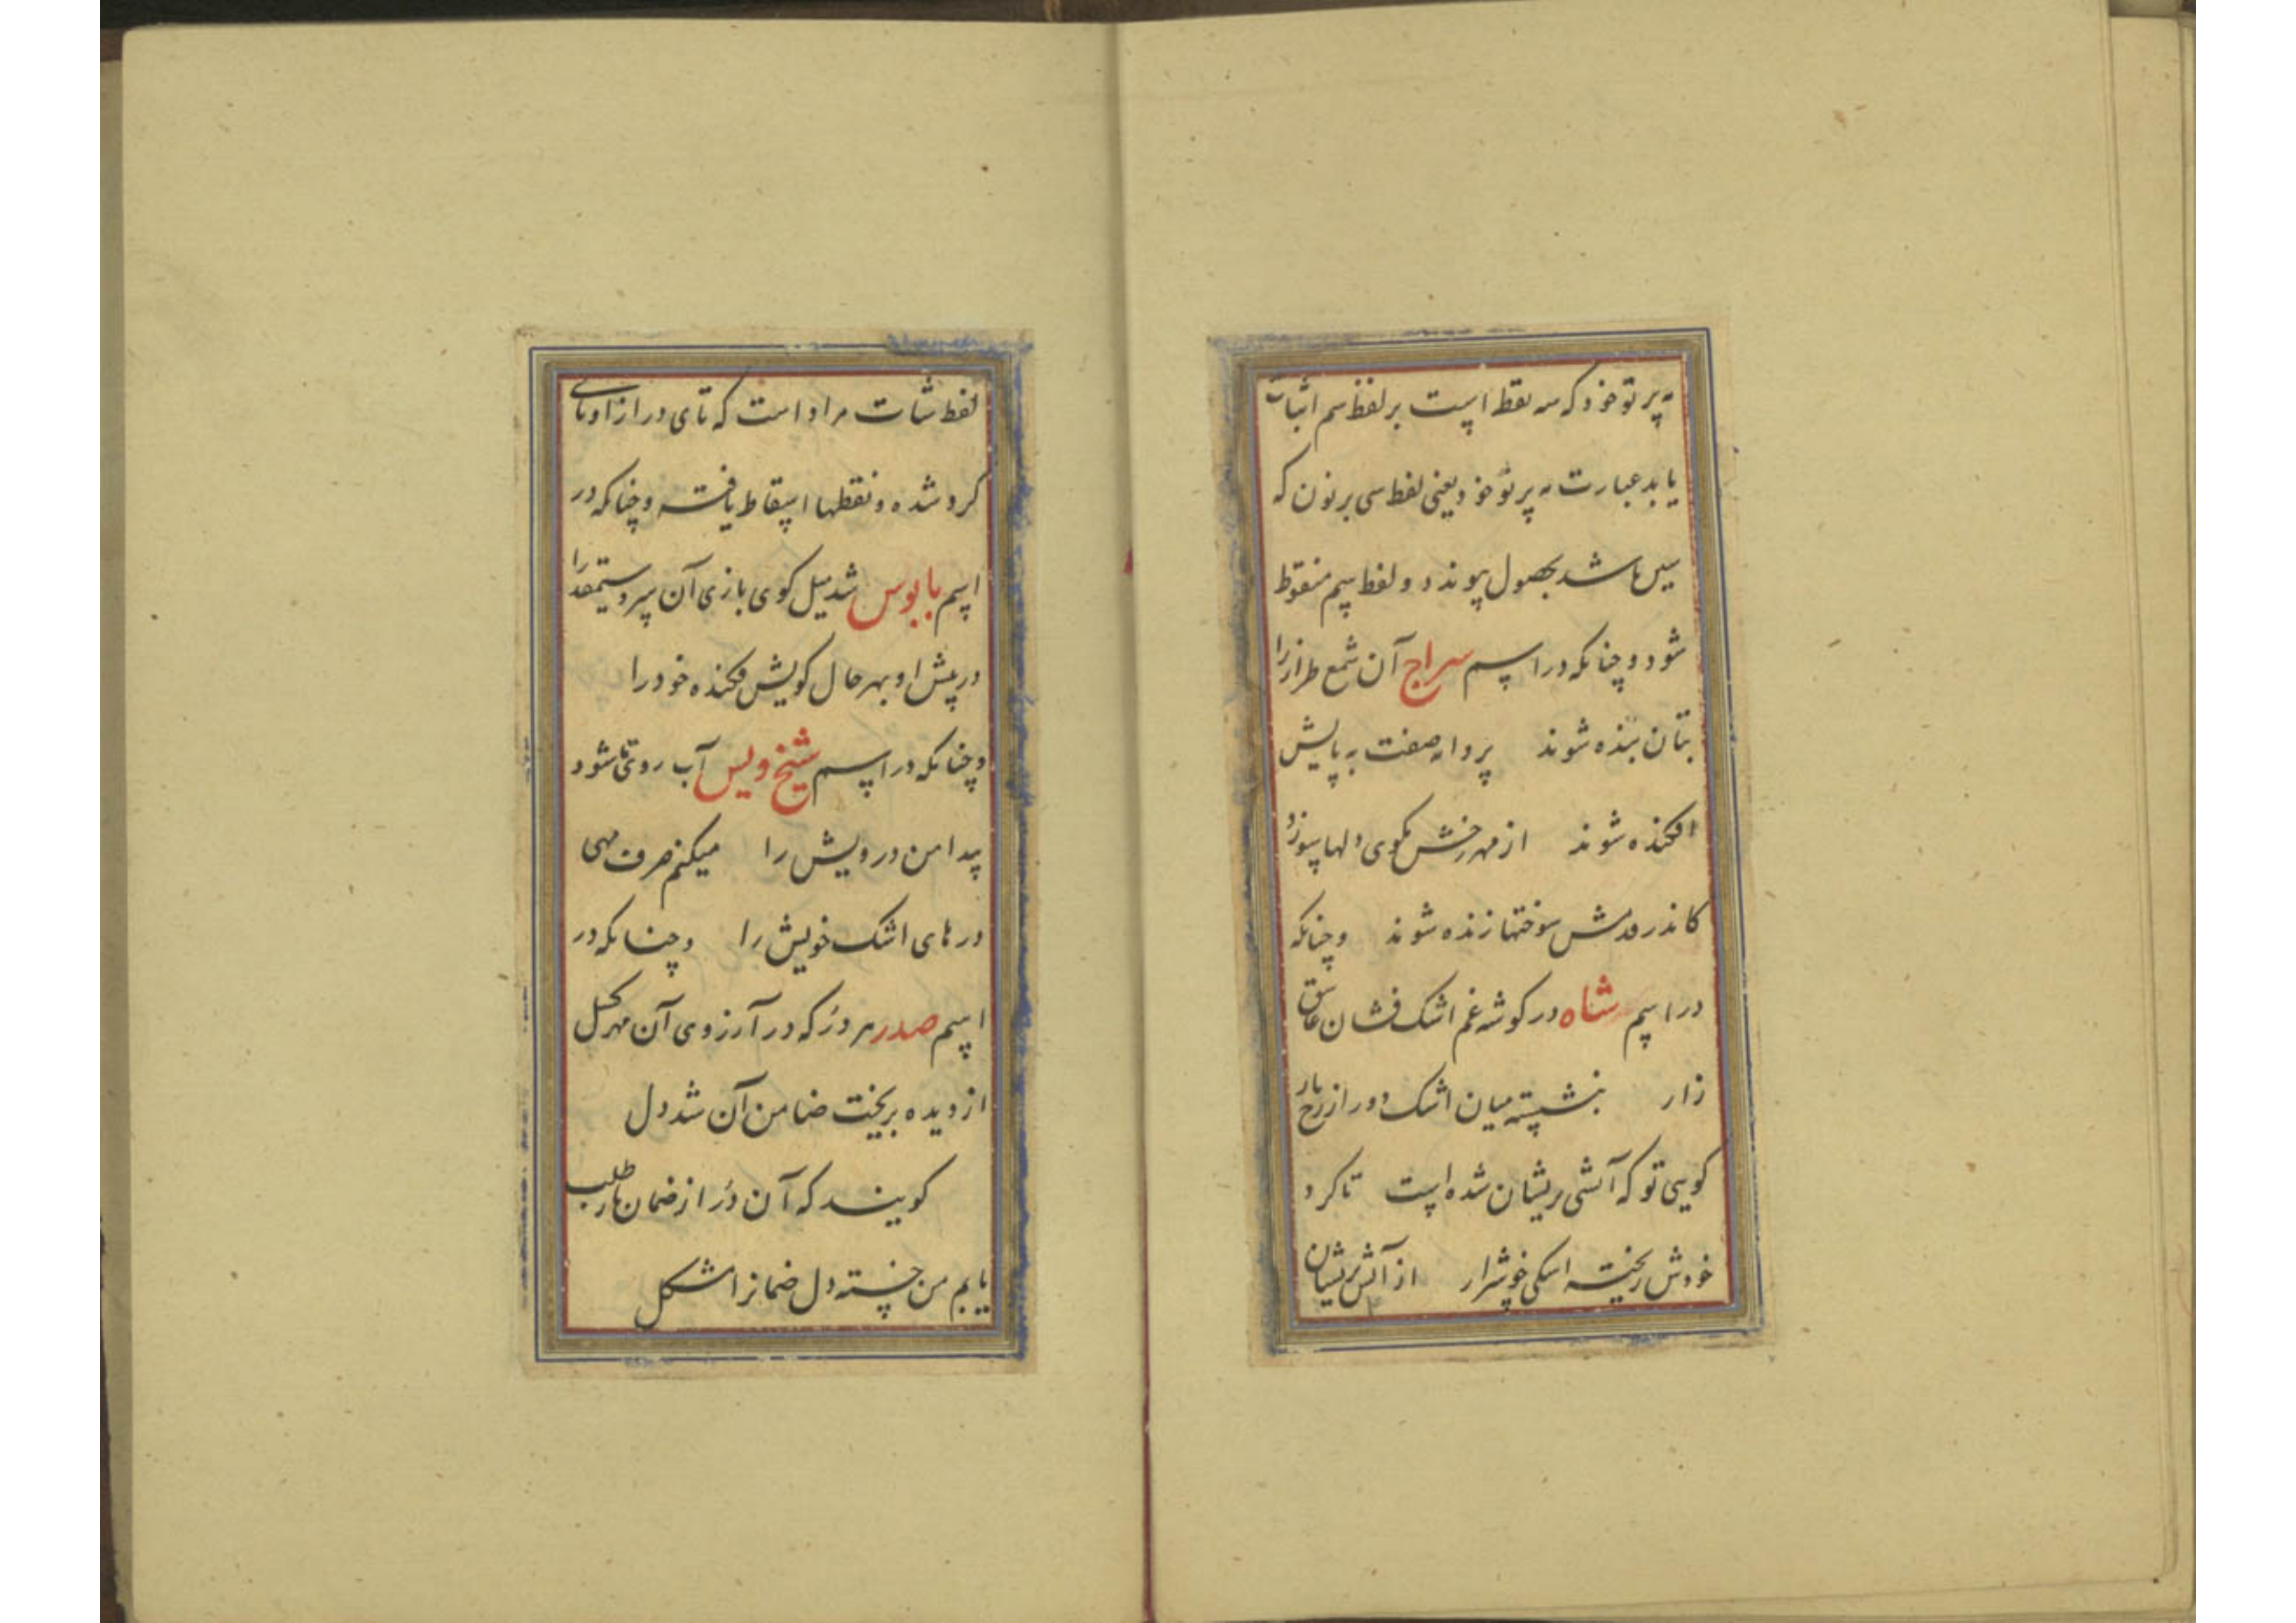 به پرتو خود که سه نقط است بر لفظ سم اثبات
یابد عبارت به پرتو خود یعنی لفظ سی بر نون که
سین باشد بحصول پیوندد و لفظ سم منقوط
شود و چنانکه در اسم سراج آن شمع طراز را
بتان بنده شوند پروانه صفت به پایش
افکنده شوند از مهر رخش بکوی دلها سوزد
کاندر قدمش سوختها زنده شوند و چنانکه
در اسم شاه در کوشه غم اشک فشان عاشق
زار بنشسته میان اشک دور از رخ یار
کویی تو که آتشی پریشان شده است تا کرد
خودش ریخته اشکی خوشرار از آتش پریشان
لفظ شات مراد است که تای دراز او تای
کرد شده و نقطها اسقاط یافته و چنانکه در
اسم بابوس شد میل کوی بازی آن سرو سیمقد را
در پیش او بهر حال کویش فکنده خود را
و چنانکه در اسم شیخ ویس آب روی تا شود
پیدا من درویش را میکنم صرف مهی
درهای اشک خویش را و چنانکه در
اسم صدر هر دُر که در آرزوی آن مهر کسل
از دیده بریخت ضامن آن شد دل
کویند که آن دُر از ضمان باز طلب
یابم من خسته دل ضمانرا مشکل